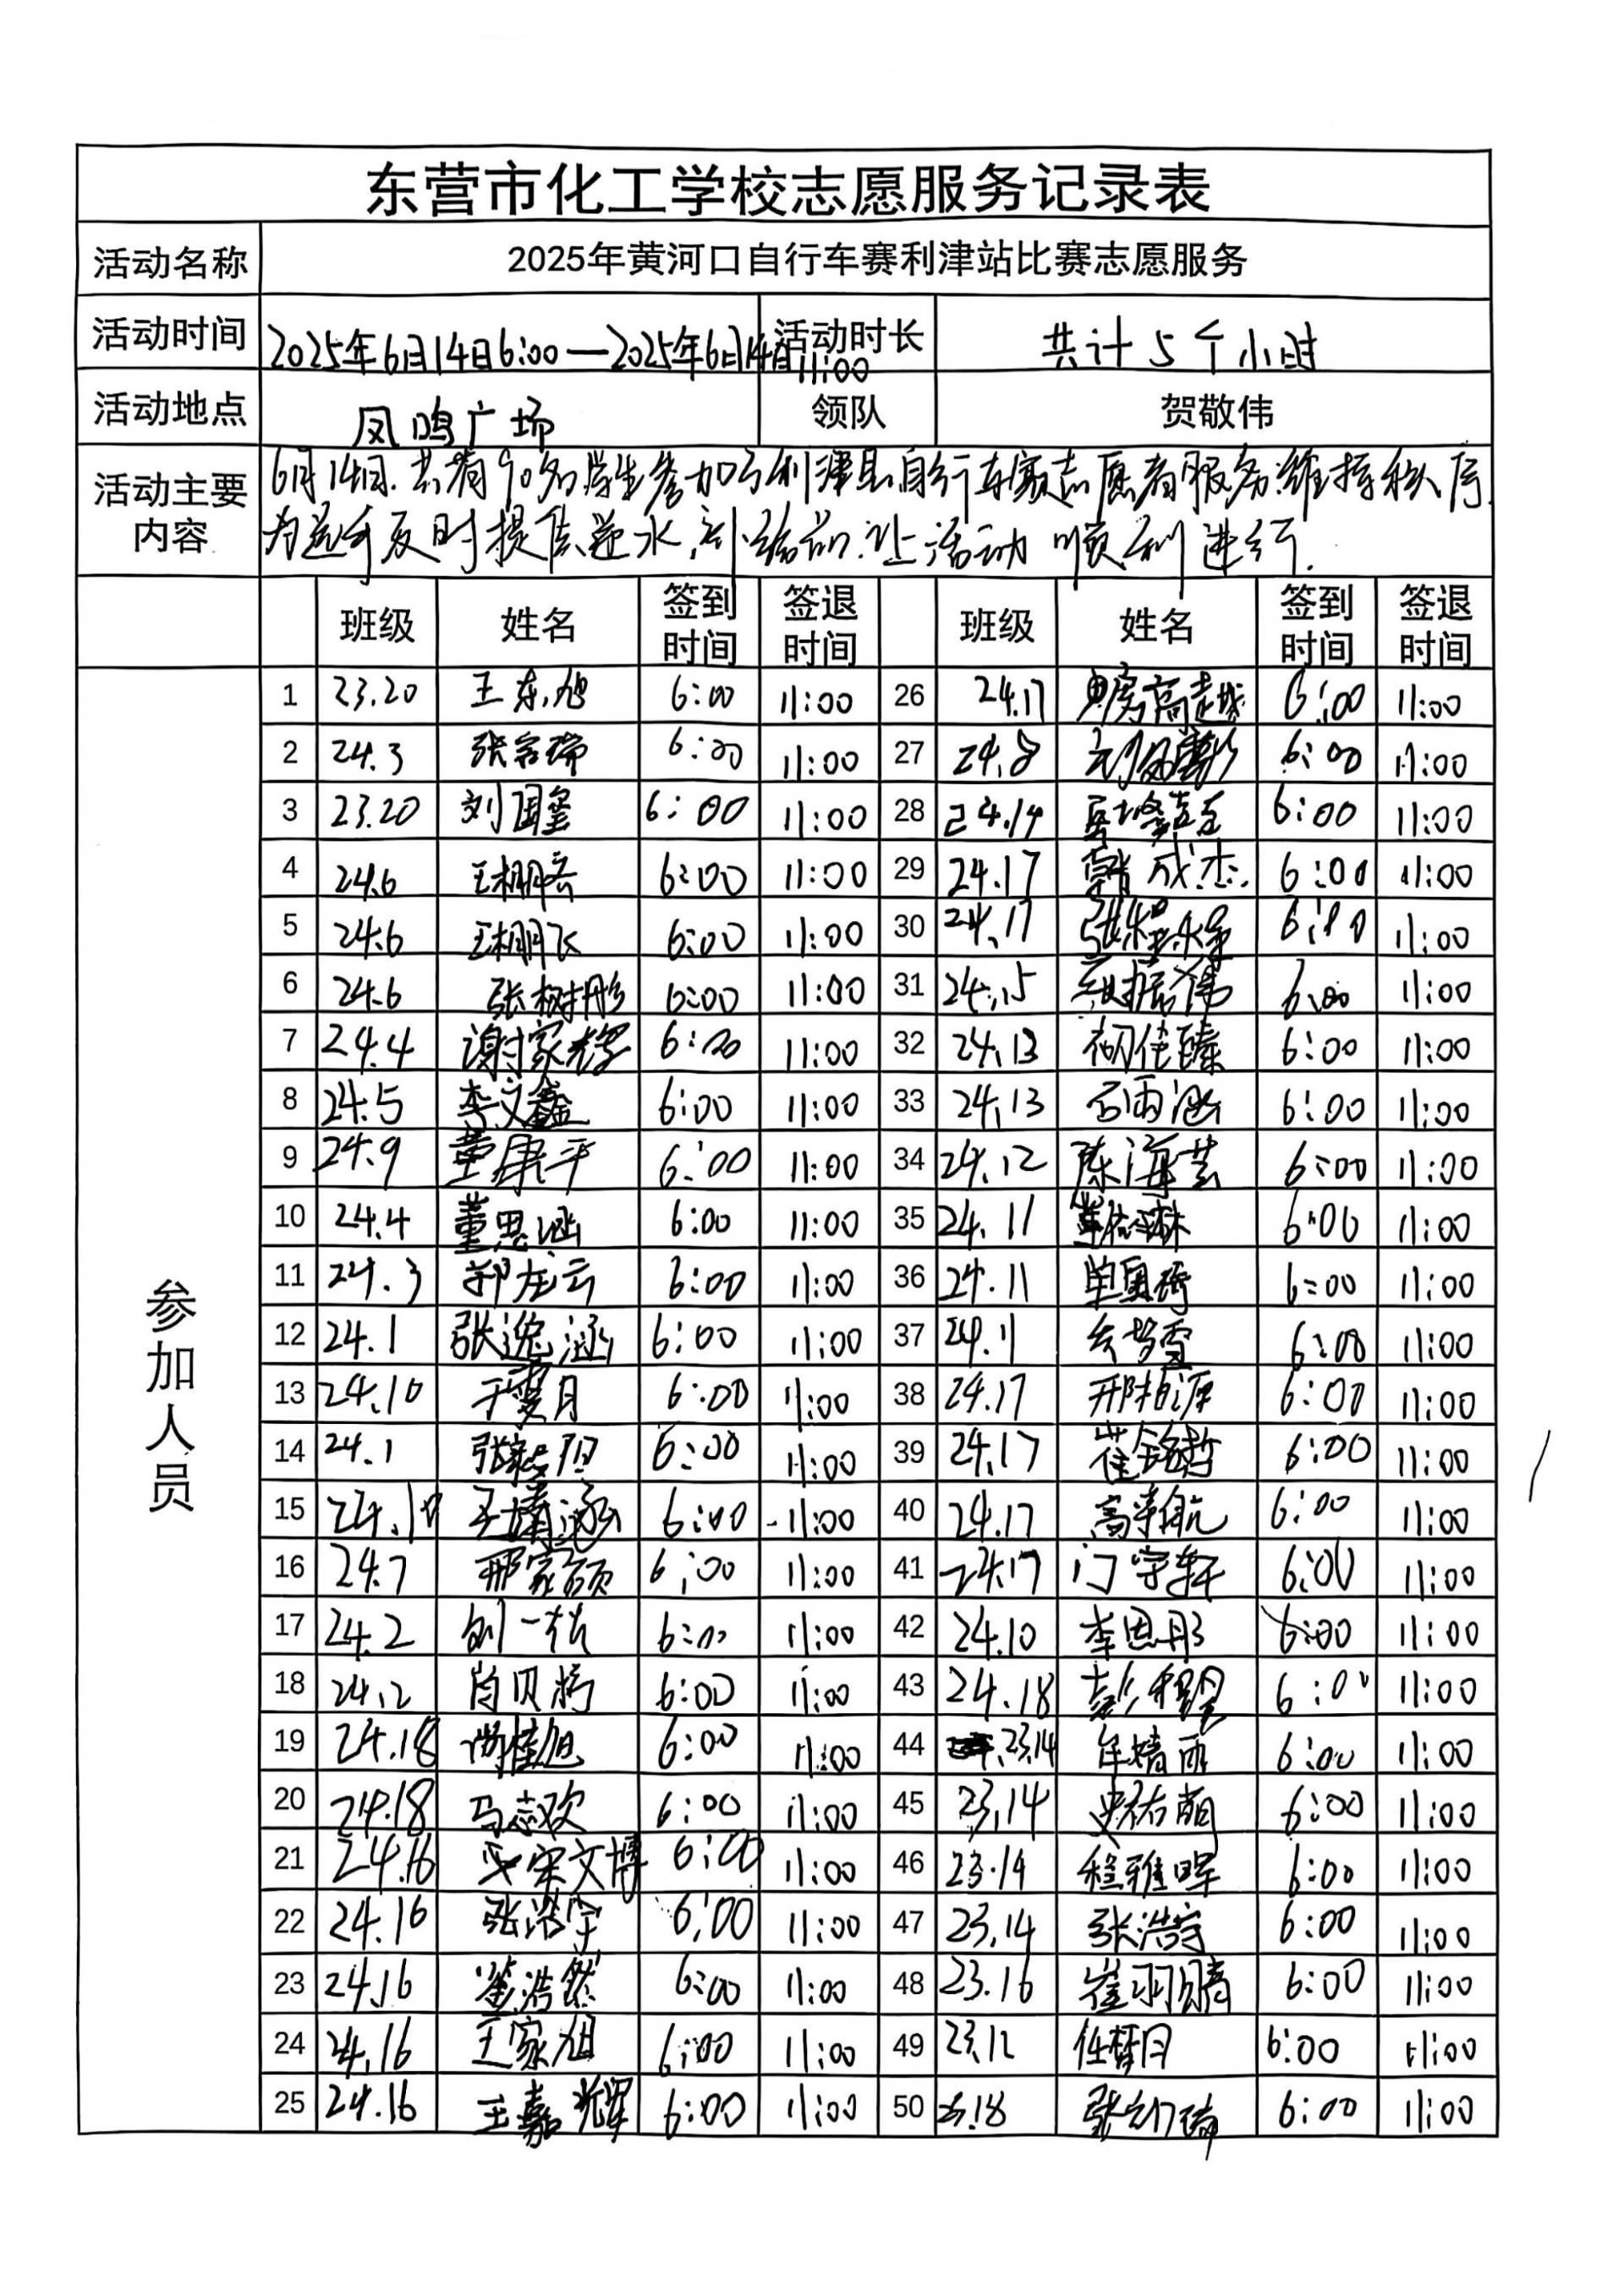 东营市化工学校志愿服务记录表
活动名称 2025年黄河口自行车赛利津站比赛志愿服务
活动时间 2025年6月14日6:00—2025年6月14日11:00 活动时长 共计5个小时
活动地点 凤鸣广场 领队 贺敬伟
活动主要内容 6月14日.共有90名学生参加了利津县自行车赛志愿者服务.维持秩序.
为选手及时提供递水,补给品.让活动顺利进行.
班级 姓名 签到时间 签退时间 班级 姓名 签到时间 签退时间
参加人员
1 23.20 王东旭 6:00 11:00 26 24.17 6:00 11:00
2 24.3 张容瑞 6:00 11:00 27 24.8 6:00 11:00
3 23.20 刘国玺 6:00 11:00 28 24.14 6:00 11:00
4 24.6 王棚 6:00 11:00 29 24.17 韩成杰 6:00 11:00
5 24.6 王棚飞 6:00 11:00 30 24.17 6:00 11:00
6 24.6 张树彤 6:00 11:00 31 24.15 振伟 6:00 11:00
7 24.4 谢家耀 6:00 11:00 32 24.13 佳臻 6:00 11:00
8 24.5 李文鑫 6:00 11:00 33 24.13 石雨涵 6:00 11:00
9 24.9 董康平 6:00 11:00 34 24.12 陈海芸 6:00 11:00
10 24.4 董思涵 6:00 11:00 35 24.11 6:00 11:00
11 24.3 郑左云 6:00 11:00 36 24.11 6:00 11:00
12 24.1 张逸涵 6:00 11:00 37 24.11 梦雪 6:00 11:00
13 24.10 于雯月 6:00 11:00 38 24.17 邢柏源 6:00 11:00
14 24.1 张 6:00 11:00 39 24.17 崔铭哲 6:00 11:00
15 24.10 王靖涵 6:00 11:00 40 24.17 高梓航 6:00 11:00
16 24.7 邢家硕 6:00 11:00 41 24.17 门宇轩 6:00 11:00
17 24.2 刘一 6:00 11:00 42 24.10 李思彤 6:00 11:00
18 24.2 肖贝 6:00 11:00 43 24.18 彭 6:00 11:00
19 24.18 尚桂旭 6:00 11:00 44 23.14 牟婧雨 6:00 11:00
20 24.18 马志欢 6:00 11:00 45 23.14 史祐萌 6:00 11:00
21 24.16 宋文博 6:00 11:00 46 23.14 程雅晖 6:00 11:00
22 24.16 张浩宇 6:00 11:00 47 23.14 张浩宇 6:00 11:00
23 24.16 董浩然 6:00 11:00 48 23.16 崔羽晴 6:00 11:00
24 24.16 王家旭 6:00 11:00 49 23.12 任梦月 6:00 11:00
25 24.16 王嘉耀 6:00 11:00 50 23.18 张 6:00 11:00